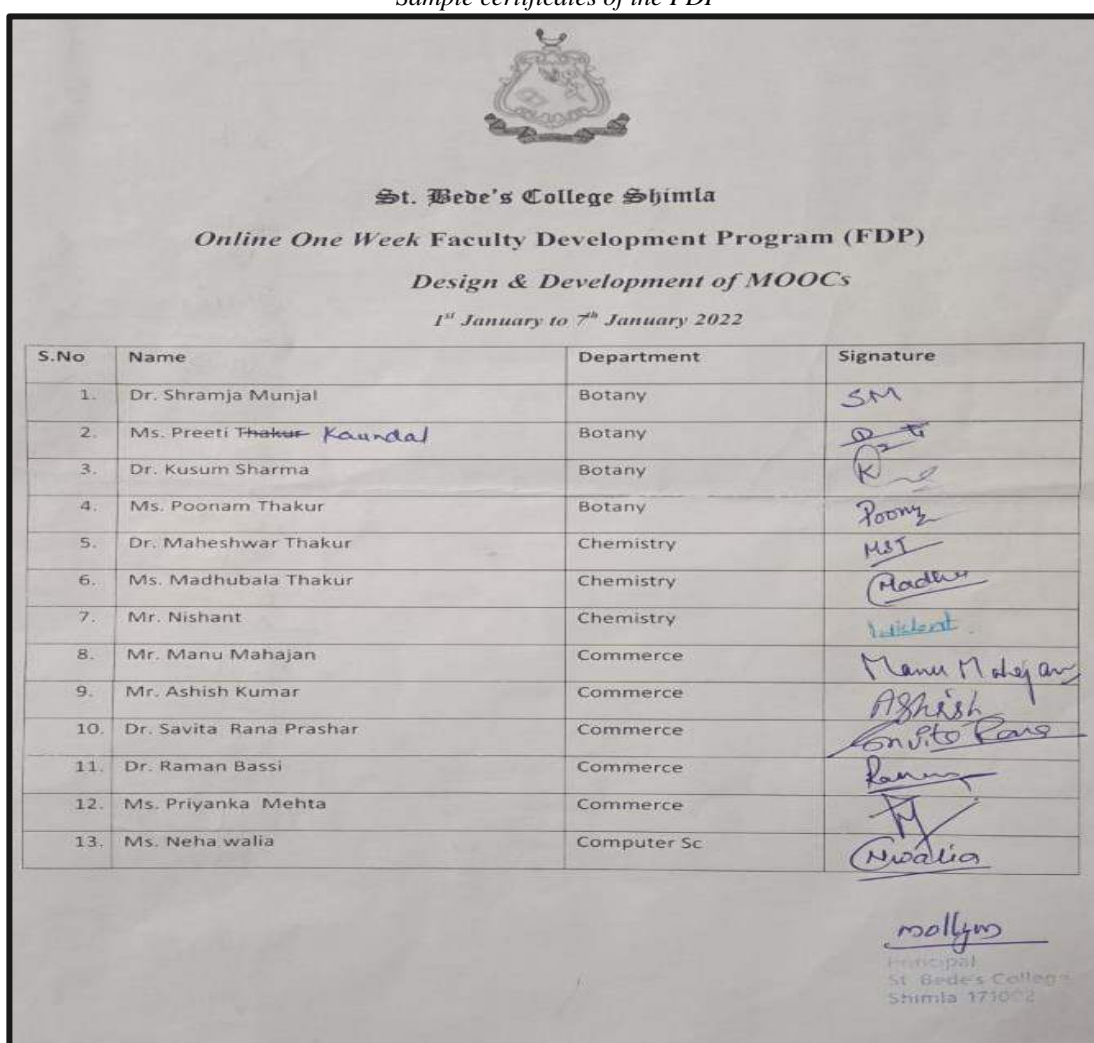 Sample certificates of the FDP
St. Bede's College Shimla
Online One Week Faculty Development Program (FDP)
Design & Development of MOOCs
1st January to 7th January 2022
S.No Name Department Signature
1. Dr. Shramja Munjal Botany SM
2. Ms. Preeti Thakur Kaundal Botany
3. Dr. Kusum Sharma Botany K
4. Ms. Poonam Thakur Botany
5. Dr. Maheshwar Thakur Chemistry MST
6. Ms. Madhubala Thakur Chemistry Madhu
7. Mr. Nishant Chemistry
8. Mr. Manu Mahajan Commerce Manu Mahajan
9. Mr. Ashish Kumar Commerce Ashish
10. Dr. Savita Rana Prashar Commerce Rana
11. Dr. Raman Bassi Commerce
12. Ms. Priyanka Mehta Commerce
13. Ms. Neha walia Computer Sc Nwalia
Principal
St. Bede's College
Shimla 171002